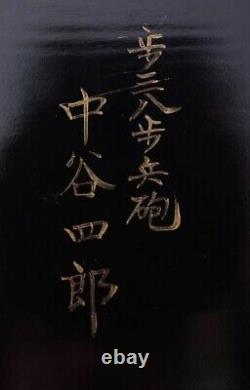 歩二八歩兵砲
中谷四郎
ebay